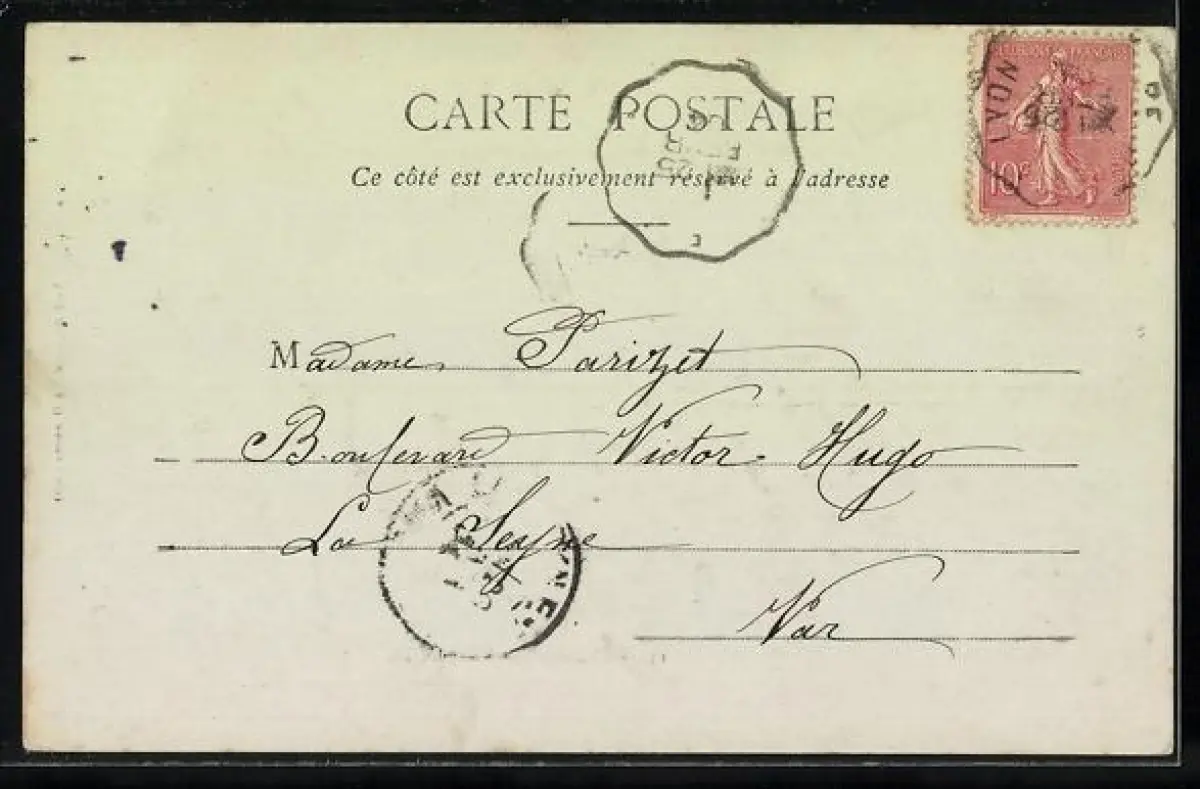 CARTE POSTALE
Ce côté est exclusivement réservé à l'adresse
LYON
10c
DE
Madame Parizet
Boulevard Victor Hugo
La Seyne
Var